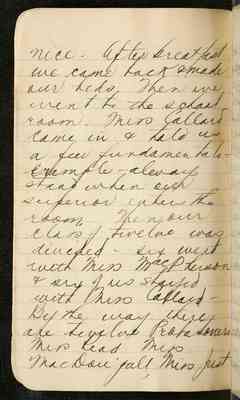 nice. After breakfast
we came back & made
our beds. Then we
went to the school
room. Miss Callard
came in & told us
a few fundamentals -
example - always
stand when our
superior enters the
room. Then our
class of twelve was
divided. six went
with Miss McPherson
& six of us stayed
with Miss Callard -
By the way there
are twelve
Miss Read, Miss
MacDougall, Miss Just